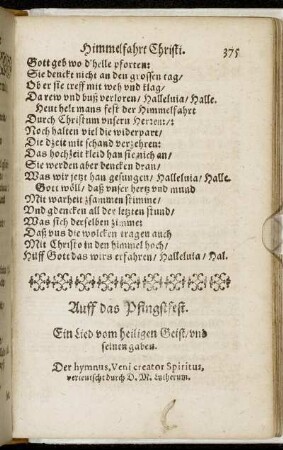 Himmelfahrt Christi. 375
Gott geb wo d'helle pforten:
Sie denckt nicht an den grossen tag/
Ob er sie treff mit weh vnd klag/
Da rew vnd buß verloren/ Halleluia/ Halle.
Heut helt mans fest der Himmelfahrt
Durch Christum vnsern Herren/:
Noch halten viel die widerpart/
Die dzeit mit schand verzehren:
Das hochzeit kleid han sie nich an/
Sie werden aber dencken dran/
Was wir jetzt han gesungen/ Halleluia/ Halle.
Gott wöll/ daß vnser hertz vnd mund
Mit warheit zsammen stimme/
Vnd gdencken all der letzten stund/
Was sich derselben zimme:
Daß vns die wolcken tragen auch
Mit Christo in den himmel hoch/
Hilff Gott das wirs erfahren/ Halleluia/ Hal.
Auff das Pfingstfest.
Ein Lied vom heiligen Geist/ vnd
seinen gaben.
Der hymnus, Veni creator Spiritus,
verteutscht durch D. M. Lutherum.